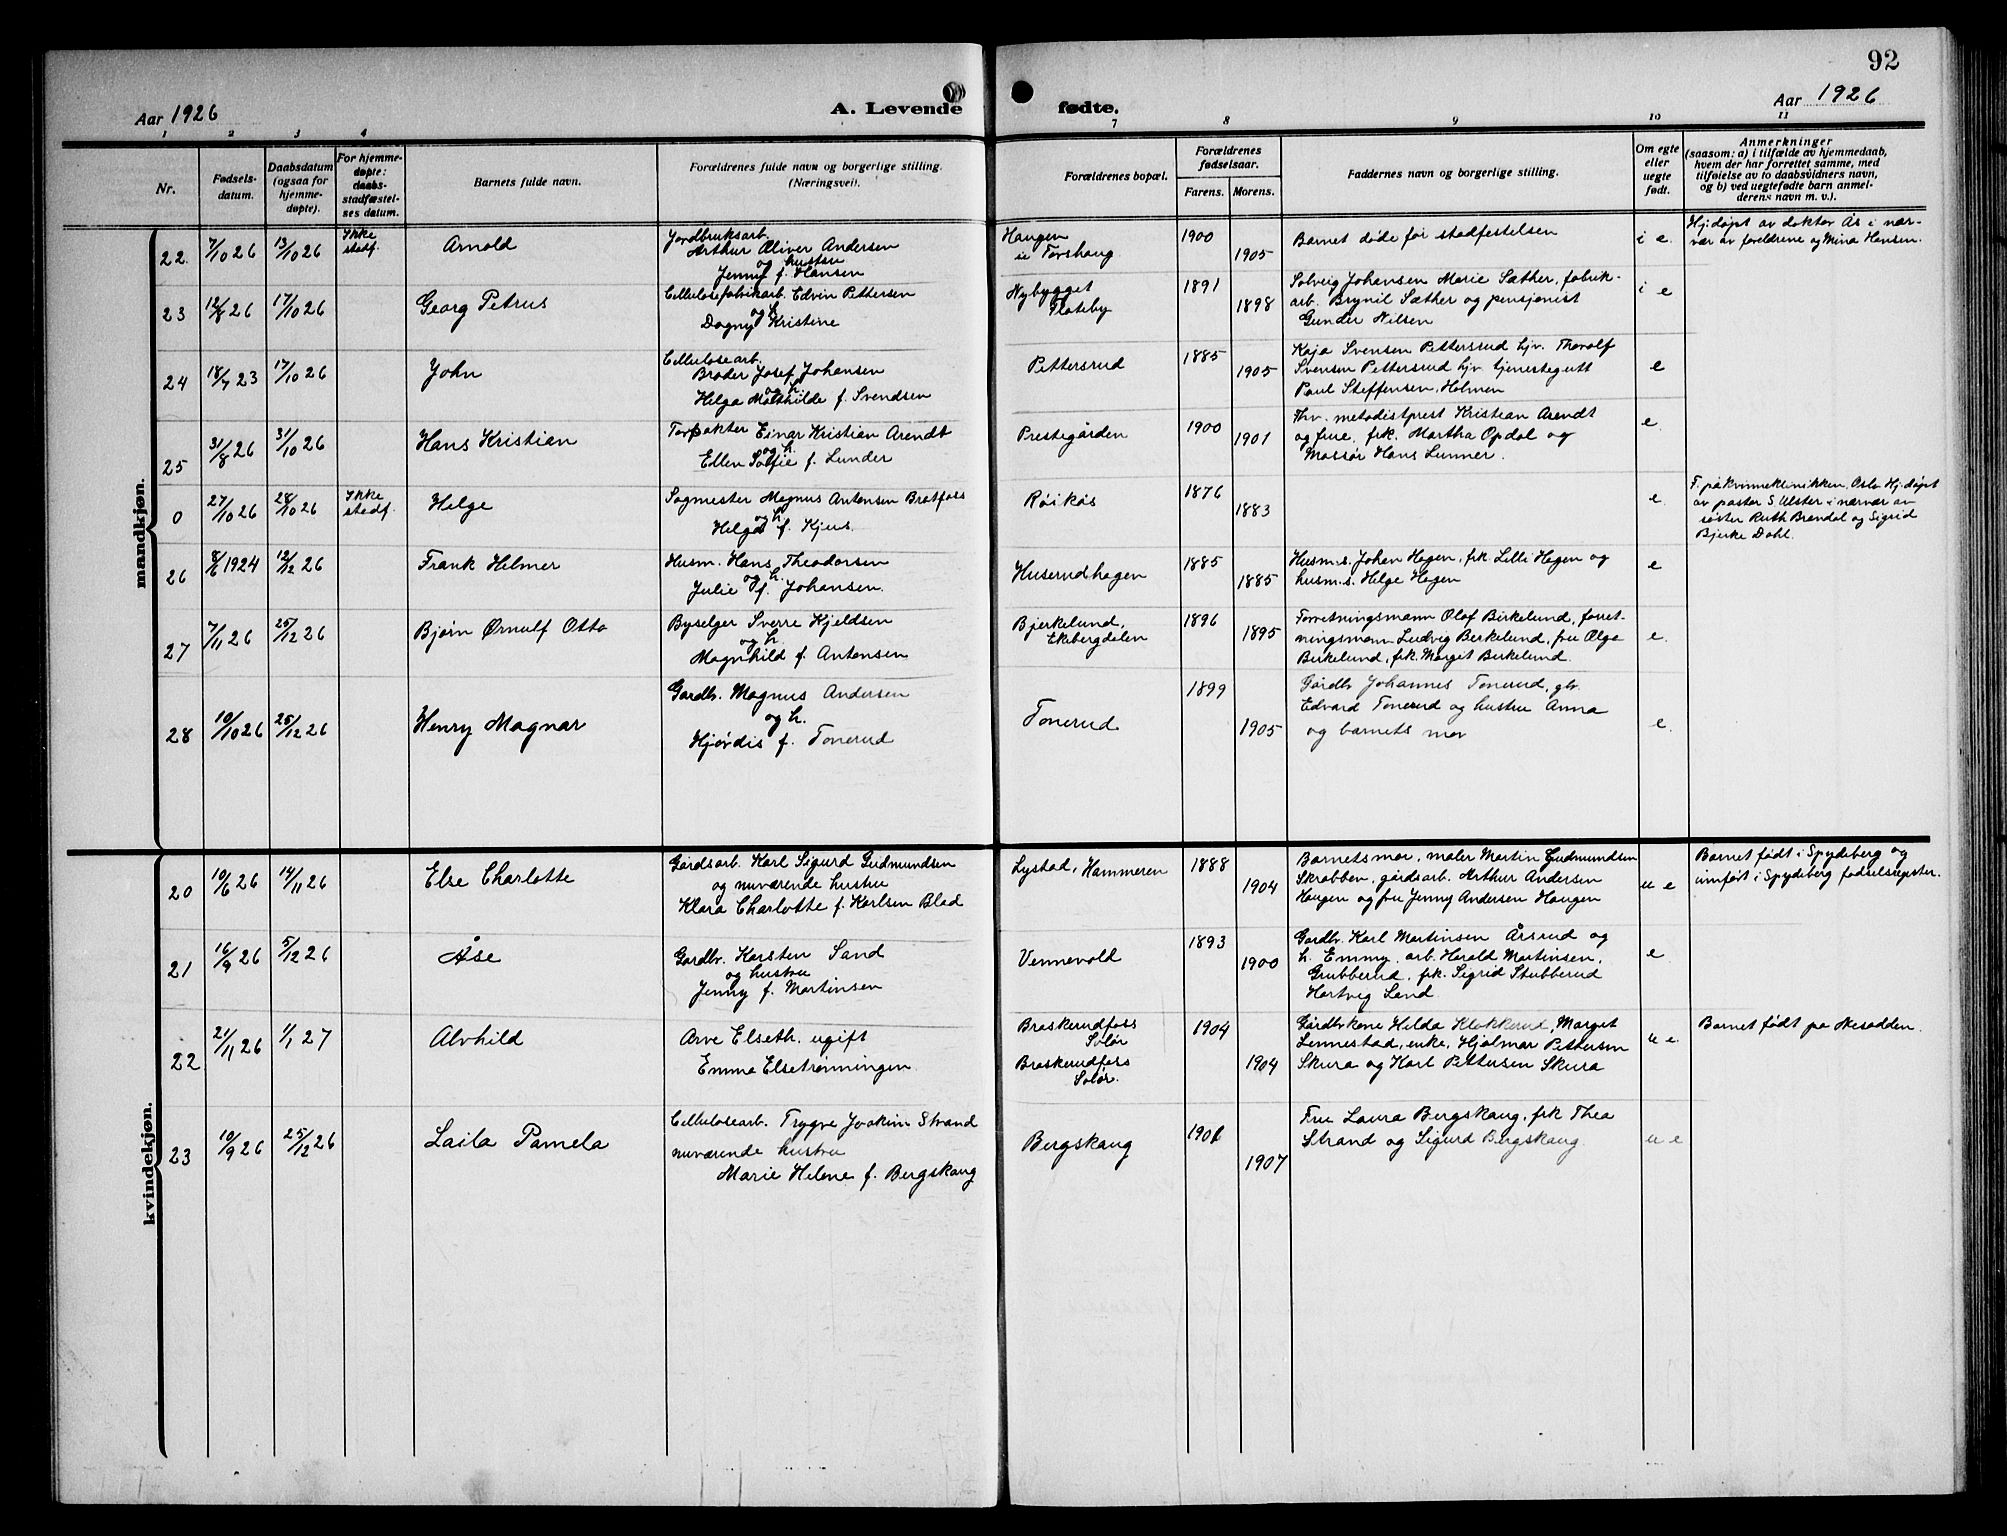 92
Aar 1926
A. Levende fødte.
Aar 1926
1 2 3 4 7 8 9 10 11
Nr.
Fødsels-
datum.
Daabsdatum
(ogsaa for
hjemme-
døpte).
For hjemme-
døpte:
daabs-
stadfæstel-
ses datum.
Barnets fulde navn.
Forældrenes fulde navn og borgerlige stilling.
(Næringsvei).
Forældrenes bopæl.
Forældrenes
fødselsaar.
Farens. Morens.
Faddernes navn og borgerlige stilling.
Om egte
eller
uegte
født.
Anmerkninger
(saasom: a) i tilfælde av hjemmedaab,
hvem der har forrettet samme, med
tilføielse av to daabsvidners navn,
og b) ved uegtefødte barn anmel-
derens navn m. v.).
mandkjøn.
22 7/10 26 13/10 26
Ikke
stadf.
Arnold
Jordbruksarb.
Arthur Oliver Andersen
og hustru
Jenny f. Hansen
Haugen
Torshaug
1900
1905
Barnet døde før stadfestelsen
i e.
Hj.døpt av doktor Ås i nær-
vær av foreldrene og Mina Hansen.
23 12/8 26 17/10 26
Georg Petrus
Cellulosefabrikarb. Edvin Pettersen
og h.
Dagny Kristine
Nybygget
Flateby
1891
1898
Solveig Johansen Marie Sæther, fabrik-
arb. Brynil Sæther og pensjonist
Gunder Nilsen
i e
24 18/7 23 17/10 26
John
Cellulosearb.
Brøder Josef Johansen
og h.
Helga Mathilde f. Svendsen
Pettersrud
1885
1905
Kaja Svensen Pettersrud hjv. Thorolf
Svensen Pettersrud hjv. tjenestegutt
Paul Steffensen, Holmen
e
25 31/8 26 31/10 26
Hans Kristian
Einar Kristian Arendt
og h.
Ellen Sofie f. Lunder
Prestegården
1900
1901
Fhv. metodistprest Kristian Arendt
og frue, frk. Martha Opdal og
Massør Hans Lunner.
e.
0 27/10 26 28/10 26
Ikke
stadf.
Helge
Sagmester Magnus Antonsen Bratfoss
og h.
Helga f. Kjus.
Røikås
1876
1883
e
F. på kvinneklinikken, Oslo Hj.døpt
av pastor S. Ulster i nærvær av
søster Ruth Brendal og Sigrid
Bjerke Dahl.
26 8/6 1924 12/12 26
Frank Helmer
Husm. Hans Theodorsen
og h.
Julie f. Johansen.
Huserudhagen
1885
1885
Husm.s. Johan Hagen, frk. Lilli Hagen og
husm.s. Helge Hagen
e
27 7/11 26 25/12 26
Bjørn Ørnulf Otto
Byselger Sverre Kjeldsen
og h.
Magnhild f. Antonsen
Bjerkelund,
Ekebergdalen
1896
1895
Forretningsmann Olaf Birkelund, forret-
ningsmann Ludvig Berkelund, fru Olga
Birkelund, frk. Marget Birkelund.
e.
28 10/10 26 25/12 26
Henry Magnar
Gardbr. Magnus Andersen
og h.
Hjørdis f. Tonerud
Tonerud
1899
1905
Gårdbr Johannes Tonerud, gbr.
Edvard Tonerud og hustru Anna
og barnets mor
e.
kvindekjøn.
20 10/6 26 14/11 26
Else Charlotte
Gårdsarb. Karl Sigurd Gudmundsen
og nuværende hustru
Klara Charlotte f. Karlsen Blad
Lystad, Hammeren
1888
1904
Barnets mor, maler Martin Gudmundsen
Skrabben, gårdsarb. Arthur Andersen
Haugen og fru Jenny Andersen Haugen
u e
Barnet født i Spydeberg og
innført i Spydeberg fødselsregister.
21 16/9 26 5/12 26
Åse
Gardbr. Karsten Sand
og hustru
Jenny f. Martinsen
Vennevold
1893
1900
Gardbr. Karl Martinsen Årsrud og
h. Emmy, arb. Harald Martinsen,
Grubberud, frk. Sigrid Stubberud
Hartvig Sand.
e
22 21/11 26 1/1 27
Alvhild
Arve Elseth, ugift
Emma Elsetrønningen.
Braskerudfoss
Solør
Braskerudfoss
Solør.
1904
1904
Gårdbrkone Hilda Klokkerud, Marget
Lennestad, enke, Hjalmar Pettersen
Skura og Karl Pettersen Skura
u e.
Barnet født på Nesodden.
23 10/9 26 25/12 26
Laila Pamela
Cellulosearb. Trygve Joakim Strand
nuværende hustru
Marie Helene f. Bergskaug
Bergskaug
1901
1907
Fru Laura Bergskaug, frk Thea
Strand og Sigurd Bergskaug.
u e